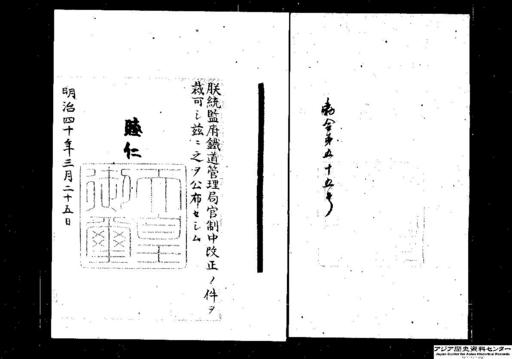 勅令第五十五号
朕統監府鐵道管理局官制中改正ノ件ヲ
裁可シ茲ニ之ヲ公布セシム
睦仁
天皇
御璽
明治四十年三月二十五日
アジア歴史資料センター
Japan Center for Asian Historical Records